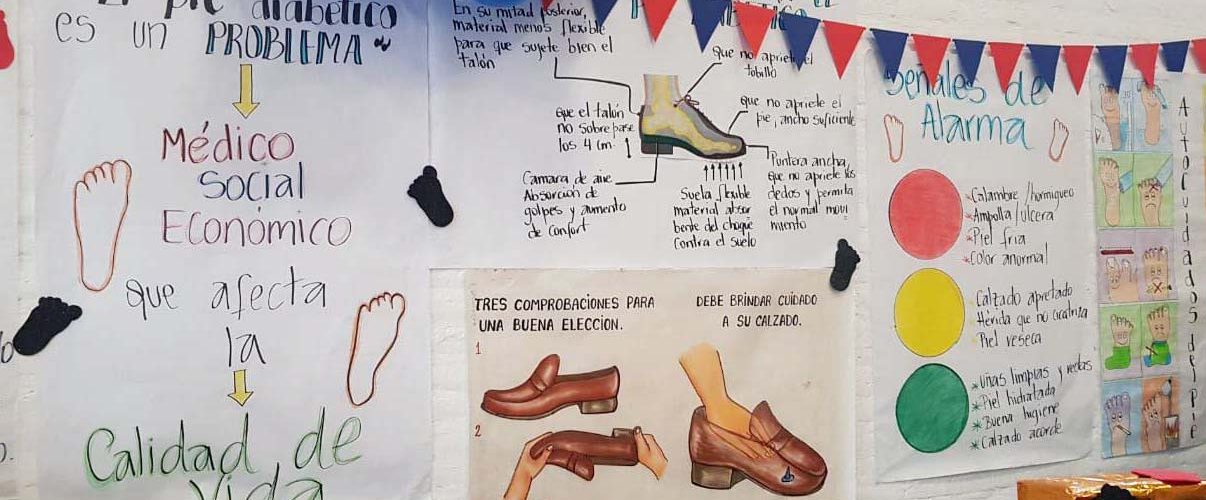 El pie diabético
es un PROBLEMA
Médico
Social
Económico
que afecta
la
Calidad de
Vida
En su mitad posterior,
material menos flexible
para que sujete bien el
talón
que no apriete el
tobillo
que el talón
no sobrepase
los 4 cm.
que no apriete el
pie, ancho suficiente
Camara de aire
Absorción de
golpes y aumento
de confort
Suela flexible
material absor
bente del choque
contra el suelo
Puntera ancha,
que no apriete los
dedos y permita
el normal movi
miento
TRES COMPROBACIONES PARA
UNA BUENA ELECCION.
1
2
DEBE BRINDAR CUIDADO
A SU CALZADO.
Señales de
Alarma
*Calambre/hormigueo
*Ampolla/ulcera
*Piel fria
*Color anormal
Calzado apretado
Herida que no cicatriza
Piel reseca
*Uñas limpias y rectas
*Piel hidratada
*Buena higiene
*Calzado acorde
Autocuidados del Pie